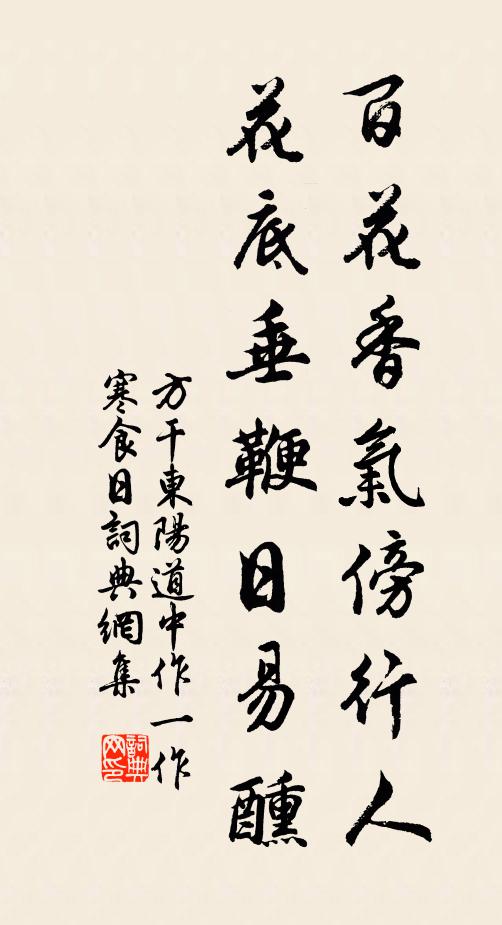 百花香氣傍行人
花底垂鞭日易醺
方干東陽道中作一作
寒食日詞典網集
詞典
网印